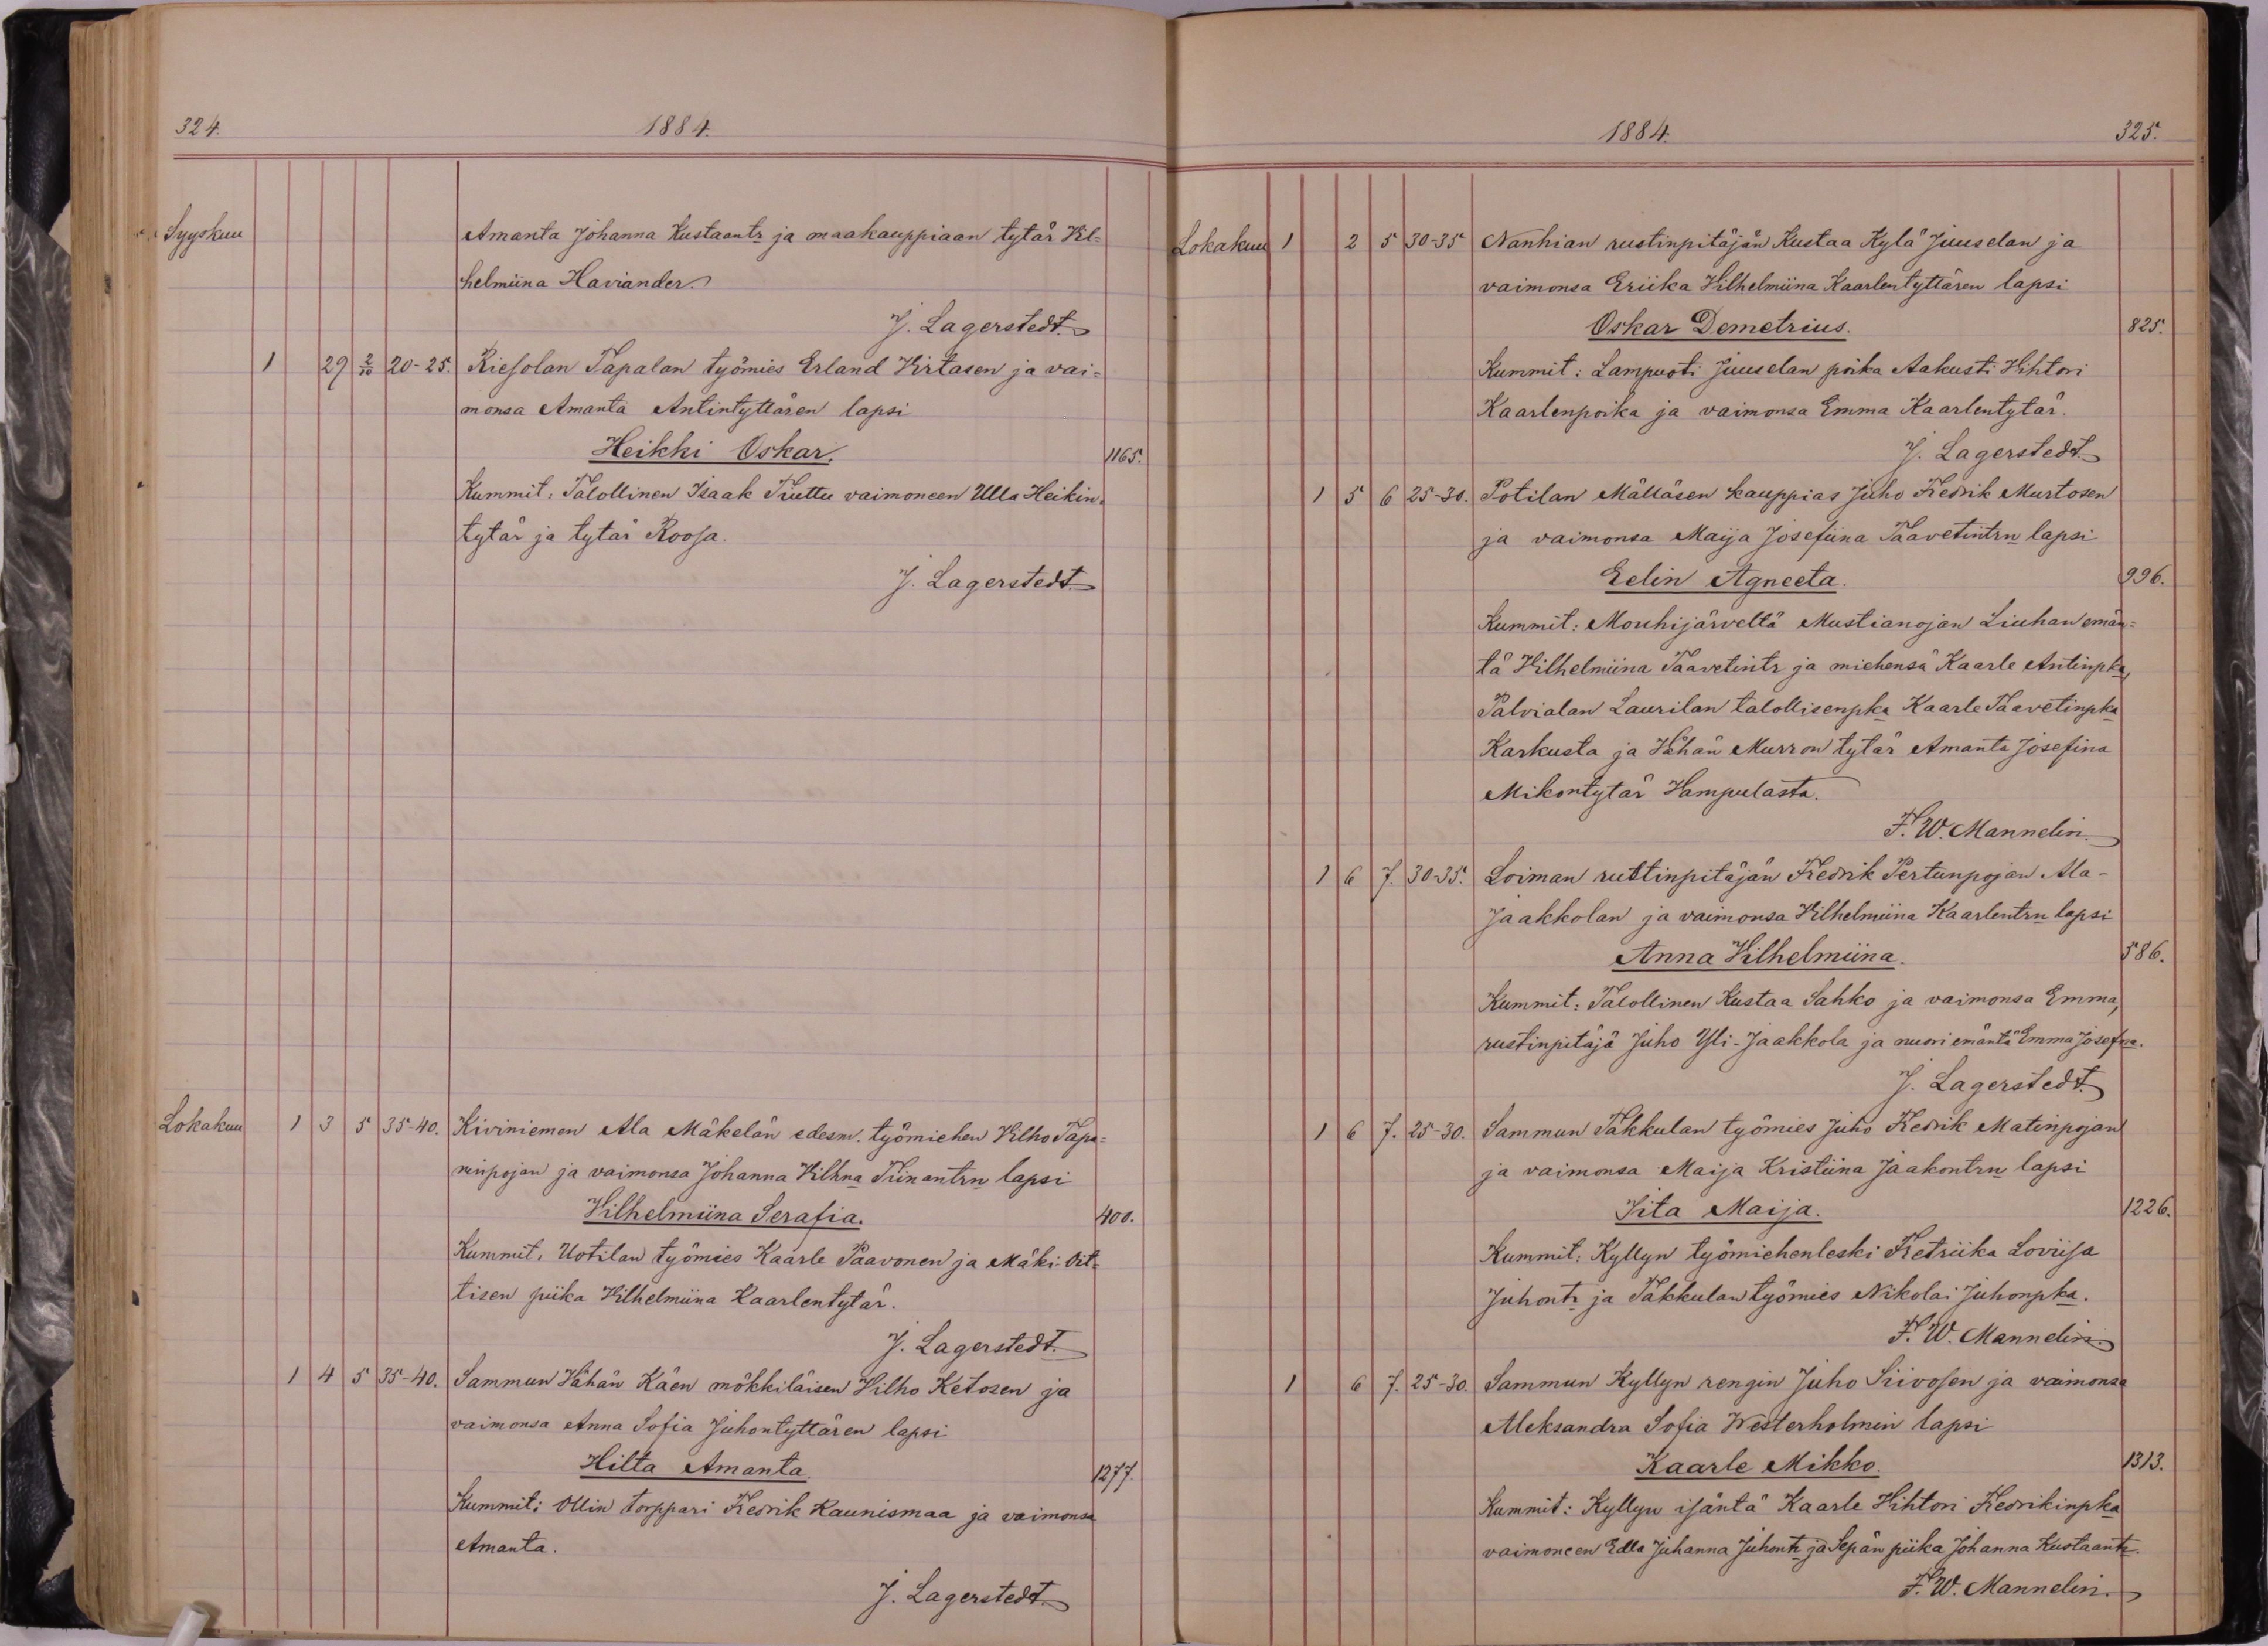 324. 1884.
Syyskuu Amanta Johanna Kustaantr ja maakauppiaan tytär Vil=
helmiina Haviander.
J. Lagerstedt.
1 29 2/10 20-25. Riesolan Tapalan työmies Erland Virtasen ja vai=
monsa Amanta Antintyttären lapsi
Heikki Oskar. 1165.
Kummit: Talollinen Isaak Tiuttu vaimoneen Ulla Heikin=
tytär ja tytär Roosa.
J. Lagerstedt.
Lokakuu 1 3 5 35-40. Kiviniemen Ala Mäkelän edesm. työmiehen Vilho Tapa=
ninpojan ja vaimonsa Johanna Vilhna Tiinantrn lapsi
Vilhelmiina Serafia. 400.
Kummit: Uotilan työmies Kaarle Paavonen ja Mäki-Oit=
tisen piika Vilhelmiina Kaarlentytär.
J. Lagerstedt.
1 4 5 35-40. Sammun Vähän Käen mökkiläisen Vilho Ketosen ja
vaimonsa Anna Sofia Juhontyttären lapsi
Hilta Amanta. 1277.
Kummit: Ollin torppari Fredrik Kaunismaa ja vaimonsa
Amanta.
J. Lagerstedt.
1884. 325.
Lokakuu 1 2 5 30-35 Nanhian rustinpitäjän Kustaa Kylä Juuselan ja
vaimonsa Eriika Vilhelmiina Kaarlentyttären lapsi
Oskar Demetrius. 825.
Kummit: Lampuoti Juuselan poika Aakusti Vihtori
Kaarlenpoika ja vaimonsa Emma Kaarlentytär.
J. Lagerstedt.
1 5 6 25-30. Potilan Mälläsen kauppias Juho Fredrik Murtosen
ja vaimonsa Maija Josefiina Taavetintrn lapsi
Eelin Agneeta. 996.
Kummit: Mouhijärveltä Mustianojan Liuhan emän=
tä Vilhelmiina Taavetintr ja miehensä Kaarle Antinpka,
Palvialan Laurilan talollisenpka Kaarle Taavetinpka
Karkusta ja Vähän Murron tytär Amanta Josefina
Mikontytär Hampulasta.
F. W. Mannelin.
1 6 7. 30-35. Loiman rustinpitäjän Fredrik Pertunpojan Ala-
Jaakkolan ja vaimonsa Vilhelmiina Kaarlentrn lapsi
Anna Vilhelmiina. 586.
Kummit: Talollinen Kustaa Sahko ja vaimonsa Emma,
rustinpitäjä Juho Yli-Jaakkola ja nuori emäntä Emma Josefna.
J. Lagerstedt.
1 6 7. 25-30. Sammun Takkulan työmies Juho Fredrik Matinpojan
ja vaimonsa Maija Kristiina Jaakontrn lapsi
Iita Maija. 1226.
Kummit: Kyllyn työmiehenleski Fretriika Loviisa
Juhontr ja Takkulan työmies Nikolai Juhonpka.
F. W. Mannelin.
1 6 7. 25-30. Sammun Kyllyn rengin Juho Siivosen ja vaimonsa
Aleksandra Sofia Westerholmin lapsi
Kaarle Mikko. 1313.
Kummit: Kyllyn isäntä Kaarle Vihtori Fredrikinpka
vaimoneen Edla Juhanna Juhontr ja Sepän piika Johanna Kustaantr.
F. W. Mannelin.